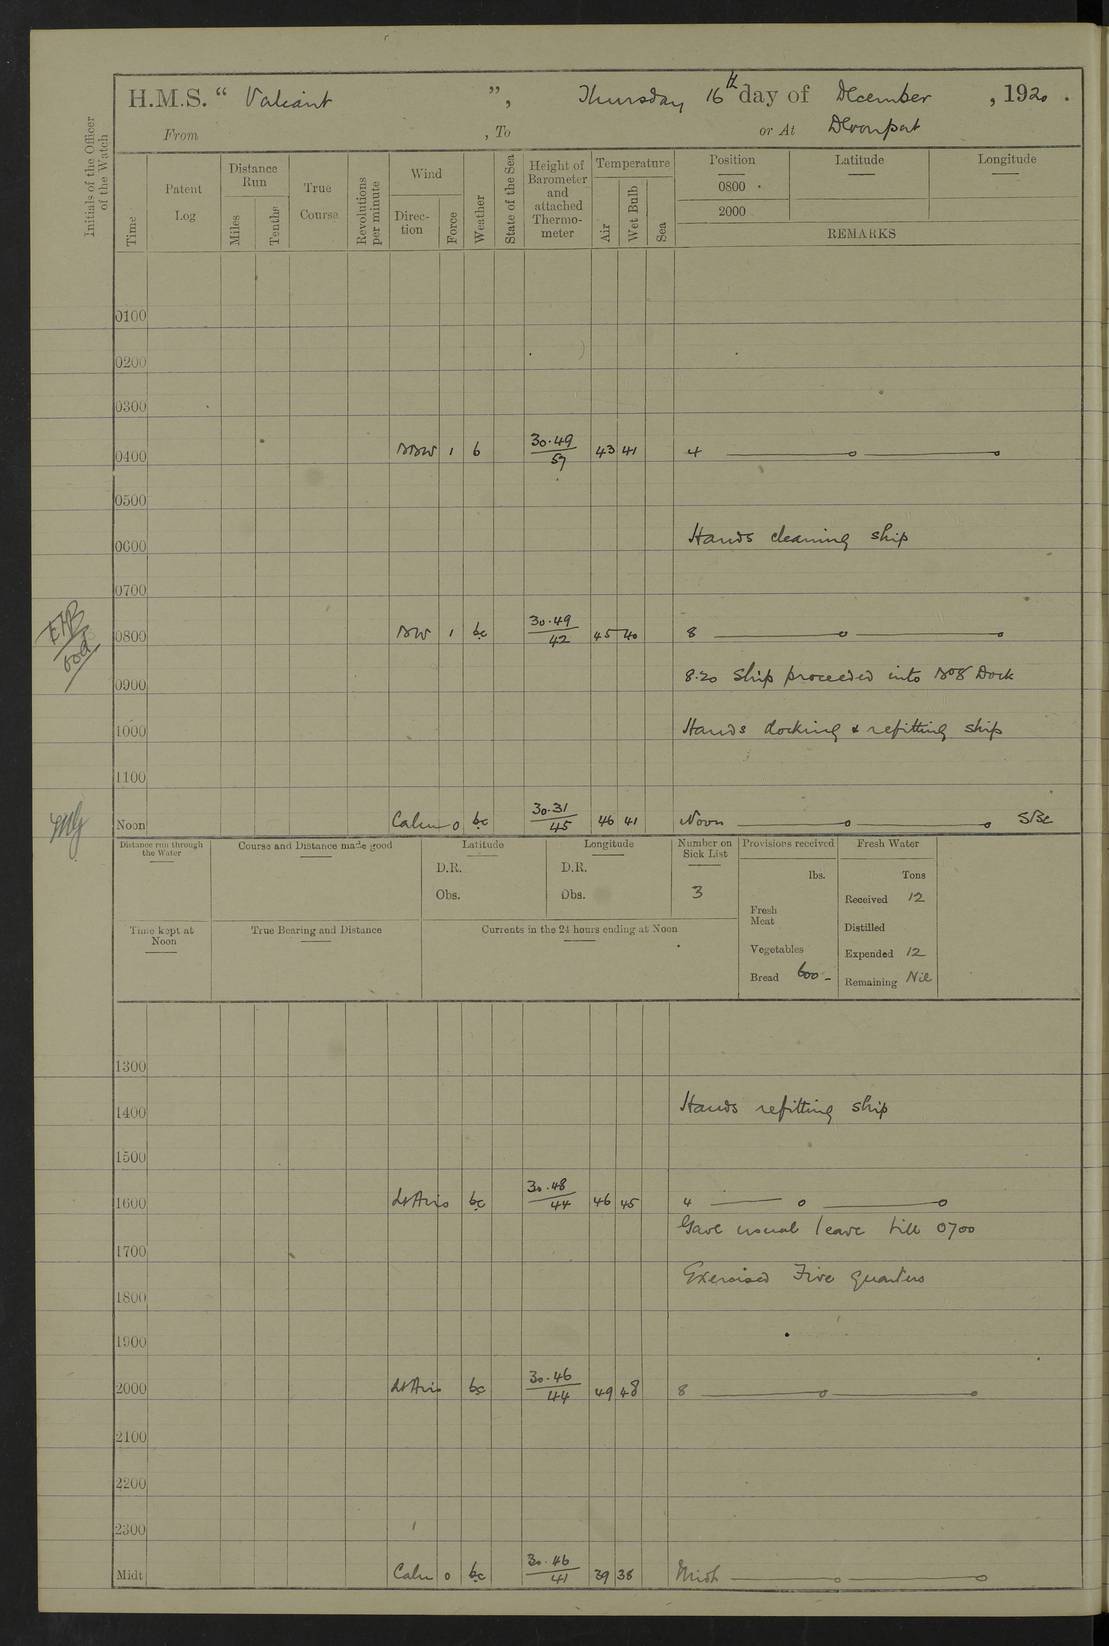 H.M.S. " Valiant ", Thursday 16th day of December , 1920 .
From , To or At Devonport
Initials of the Officer of the Watch
Time
Patent Log
Distance Run
Miles
Tenths
True Course
Revolutions per minute
Wind
Direc-tion
Force
Weather
State of the Sea
Height of Barometer and attached Thermo-meter
Temperature
Air
Wet Bulb
Sea
Position
0800
2000
Latitude
Longitude
REMARKS
0100
0200
0300
0400 1 b 30.49/57 43 41 4
0500
0600 Hands cleaning ship
0700
0800 1 bc 30.49/42 45 40 8
8.20 Ship proceeded into No 8 Dock
0900
1000 Hands docking & refitting ship
1100
Noon Calm 0 bc 30.31/45 46 41 Noon
Distance run through the Water
Course and Distance made good
Latitude
D.R.
Obs.
Longitude
D.R.
Obs.
Number on Sick List
3
Provisions received
lbs.
Fresh Meat
Vegetables
Bread 600 -
Fresh Water
Tons
Received 12
Distilled
Expended 12
Remaining Nil
Time kept at Noon
True Bearing and Distance
Currents in the 24 hours ending at Noon
1300
1400 Hands refitting ship
1500
1600 Lt Airs bc 30.48/44 46 45 4
Gave usual leave till 0700
1700
Exercised Fire quarters
1800
1900
2000 Lt Airs bc 30.46/44 49 48 8
2100
2200
2300
Midt Calm 0 bc 30.46/41 39 38 Midt